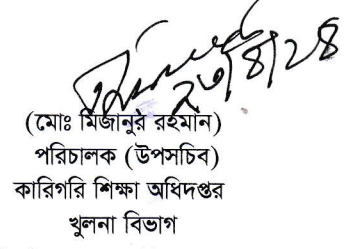 ২৩/৪/২৪
(মোঃ মিজানুর রহমান)
পরিচালক (উপসচিব)
কারিগরি শিক্ষা অধিদপ্তর
খুলনা বিভাগ